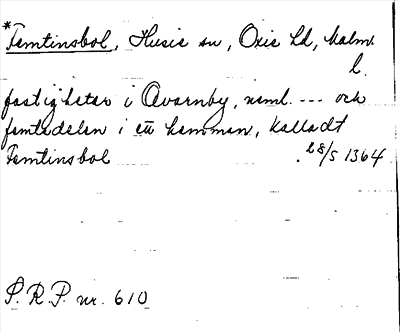 *Temtinsbol, Husie sn, Oxie hd, Malm.
l.
fastigheter i Qvarnby, näml. --- och
femtedelen i ett hemman, kalladt
Temtinsbol . 28/5 1364
P.R.P. nr. 610